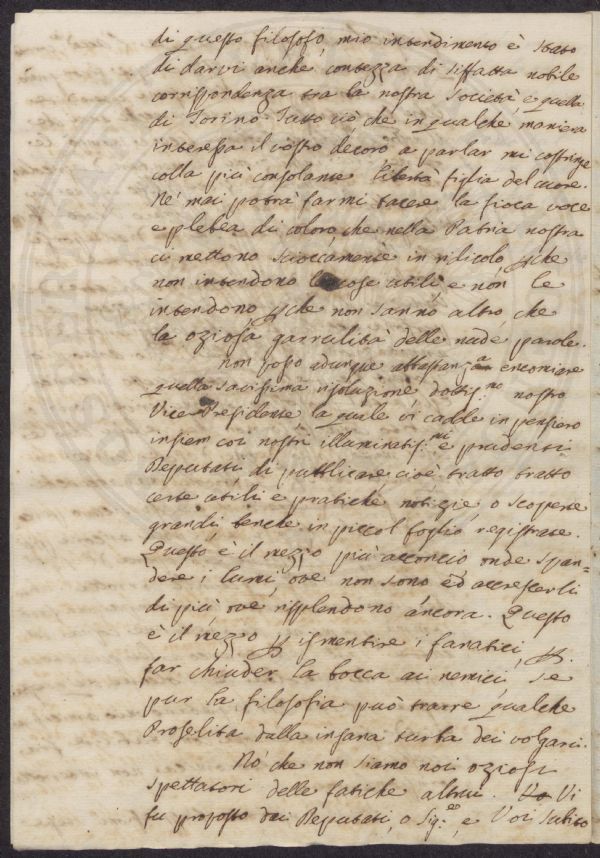 di questo filosofo, mio intendimento è stato
di darvi anche contezza di siffatta nobile
corrispondenza tra la nostra società, e quella
di Torino. Tutto ciò, che in qualche maniera
interessa il vostro decoro a parlar mi costringe
colla più consolante libertà figlia del cuore.
Né mai potrà farmi tacere la fioca voce
e plebea di coloro, che nella Patria nostra
ci mettono scioccamente in ridicolo pche
non intendono le cose utili e non le
intendono pche non sanno altro, che
la oziosa garrulità delle nude parole.
Non posso adunque abbastanza encomiare
quella savissima risoluzione dottis:mo nostro
Vice-Presidente la quale vi cadde in pensiero
insiem coi nostri illuminatiss:mi e prudenti
Deputati, di pubblicare cioè tratto tratto
certe utili e pratiche notizie, o scoperte
grandi, benche in piccol foglio, registrate.
Questo è il mezzo più acconcio onde span=
dere i lumi, ove non sono ed accrescerli
di più, ove risplendono ancora. Questo
è il mezzo p ismentire i fanatici, p
far chiuder la bocca ai nemici, se
pur la filosofia può trarre qualche
Proselita dalla insana turba dei volgari.
Nò che non siamo noi oziosi
spettatori delle fatiche altrui. Vi
fu proposto dai Deputati, o Sig:ri, e Voi subito